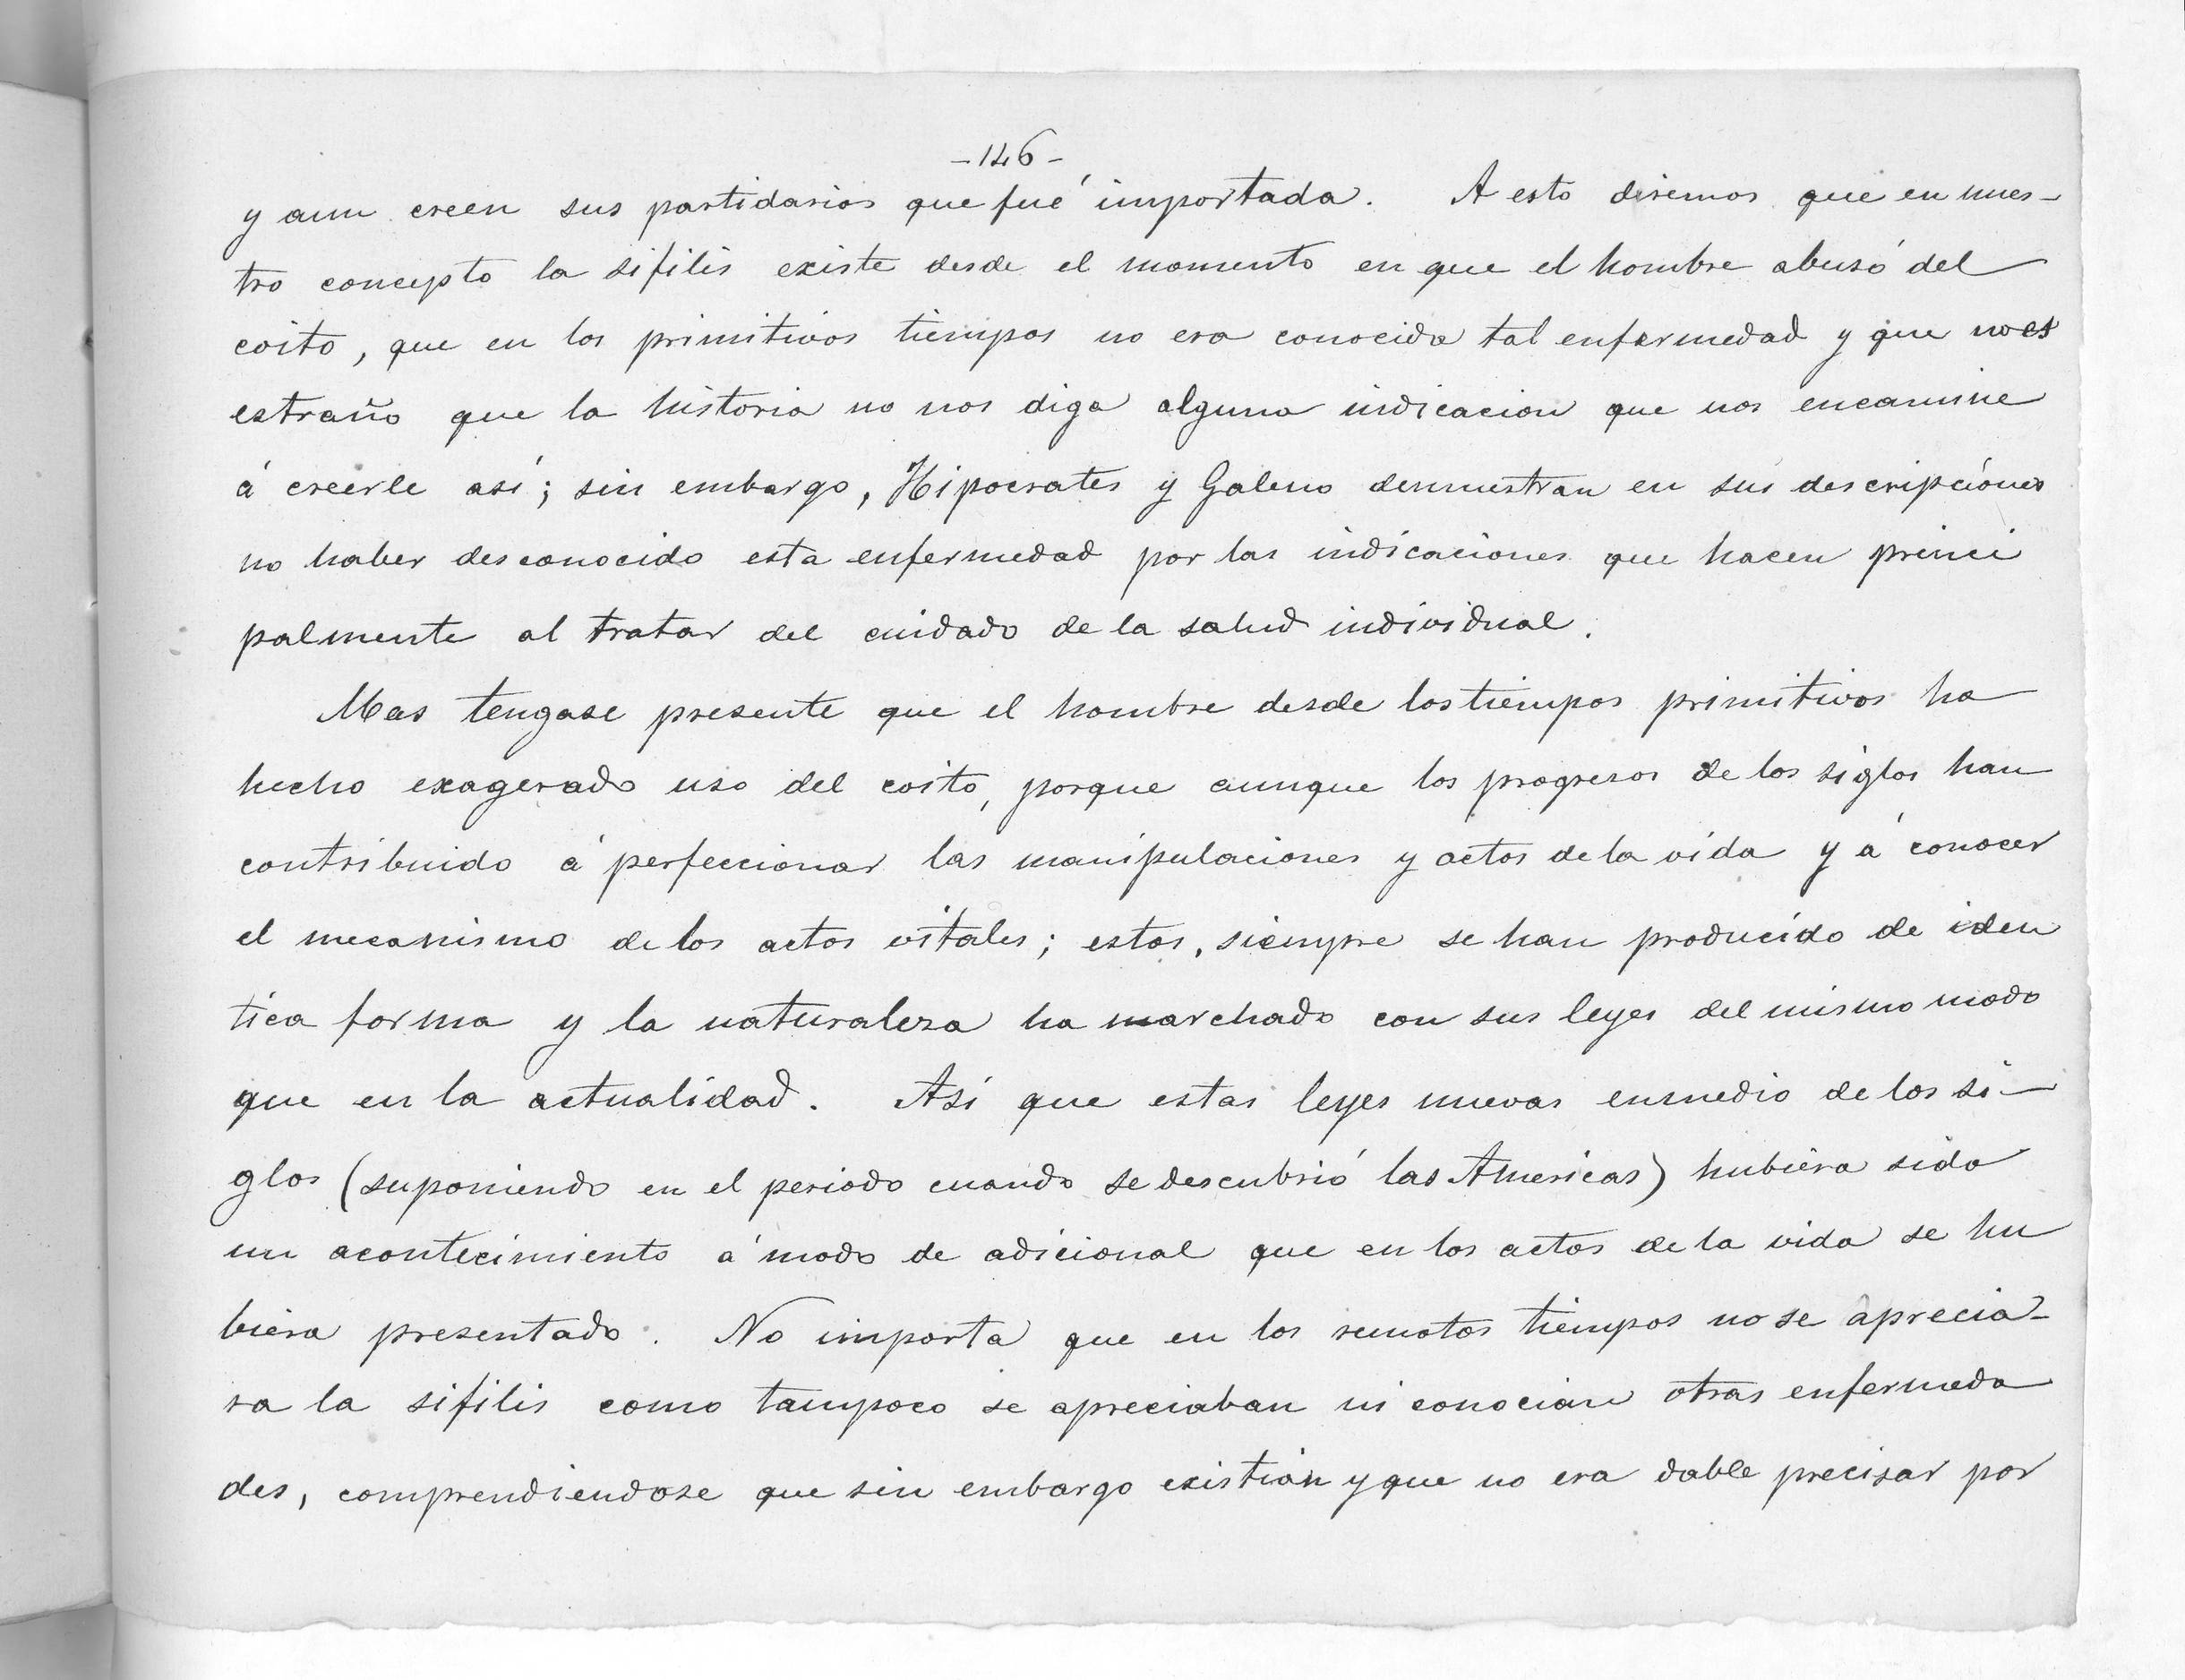 -146-
y aun creen sus partidarios que fué importada. A esto diremos que en nues-
tro concepto la sifilis existe desde el momento en que el hombre abusó del
coito, que en los primitivos tiempos no era conocida tal enfermedad y que no es
estraño que la historia no nos diga alguna indicacion que nos encamine
á creerle así; sin embargo, Hipocrates y Galeno demuestran en sus descripciónes
no haber desconocido esta enfermedad por las indicaciones que hacen princi
palmente al tratar del cuidado de la salud individual.
Mas tengase presente que el hombre desde los tiempos primitivos ha
hecho exagerado uso del coito, porque aunque los progresos de los siglos han
contribuido á perfeccionar las manipulaciones y actos de la vida y á conocer
el mecanismo de los actos vitales; estos, siempre se han producido de iden
tica forma y la naturaleza ha marchado con sus leyes del mismo modo
que en la actualidad. Asi que estas leyes nuevas enmedio de los si-
glos (suponiendo en el periodo cuando se descubrió las Americas) hubiera sido
un acontecimiento á modo de adicional que en los actos de la vida se hu
biera presentado. No importa que en los remotos tiempos no se aprecia-
ra la sifilis como tampoco se apreciaban ni conocian otras enfermeda
des, comprendiendose que sin embargo existian y que no era dable precisar por